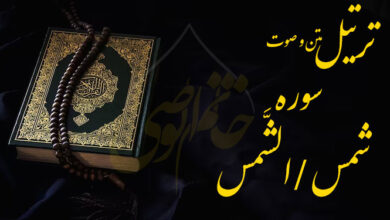 ترتیل
متن و صوت
سوره
شمس / الشَّمس
خاتم الوصی